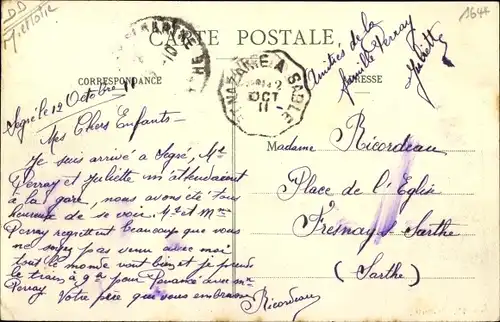 1644
CARTE POSTALE
Amitiés de la
famille Perray
Juliette
CORRESPONDANCE
ADRESSE
NAZAIRE A SABLE
12
OCT
11
Segré le 12 Octobre 11
Mes Chers Enfants -
Je suis arrivé a Segré, Mr
Perray et Juliette m'attendaient
à la gare, nous avons été tous
heureux de se voir. Mr et Mme
Perray regrettent beaucoup que vous
ne soyez pas venu avec moi
tout le monde vont bien et je prends
le train à pour Pouancé avec
Perray Votre père que vous embrasse
Ricordeau
Madame Ricordeau
Place de l'Eglise
Fresnay s Sarthe
(Sarthe)